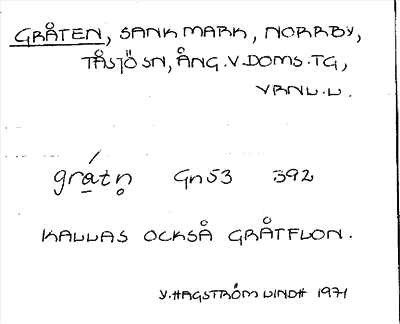 GRÅTEN, SANK MARK, NORRBY,
TÅSJÖ SN, ÅNG. V. DOMS. TG,
VRNL.L.
grátn̥ Gn53 392
KALLAS OCKSÅ GRÅTFLON.
Y. HAGSTRÖM LINDH 1971